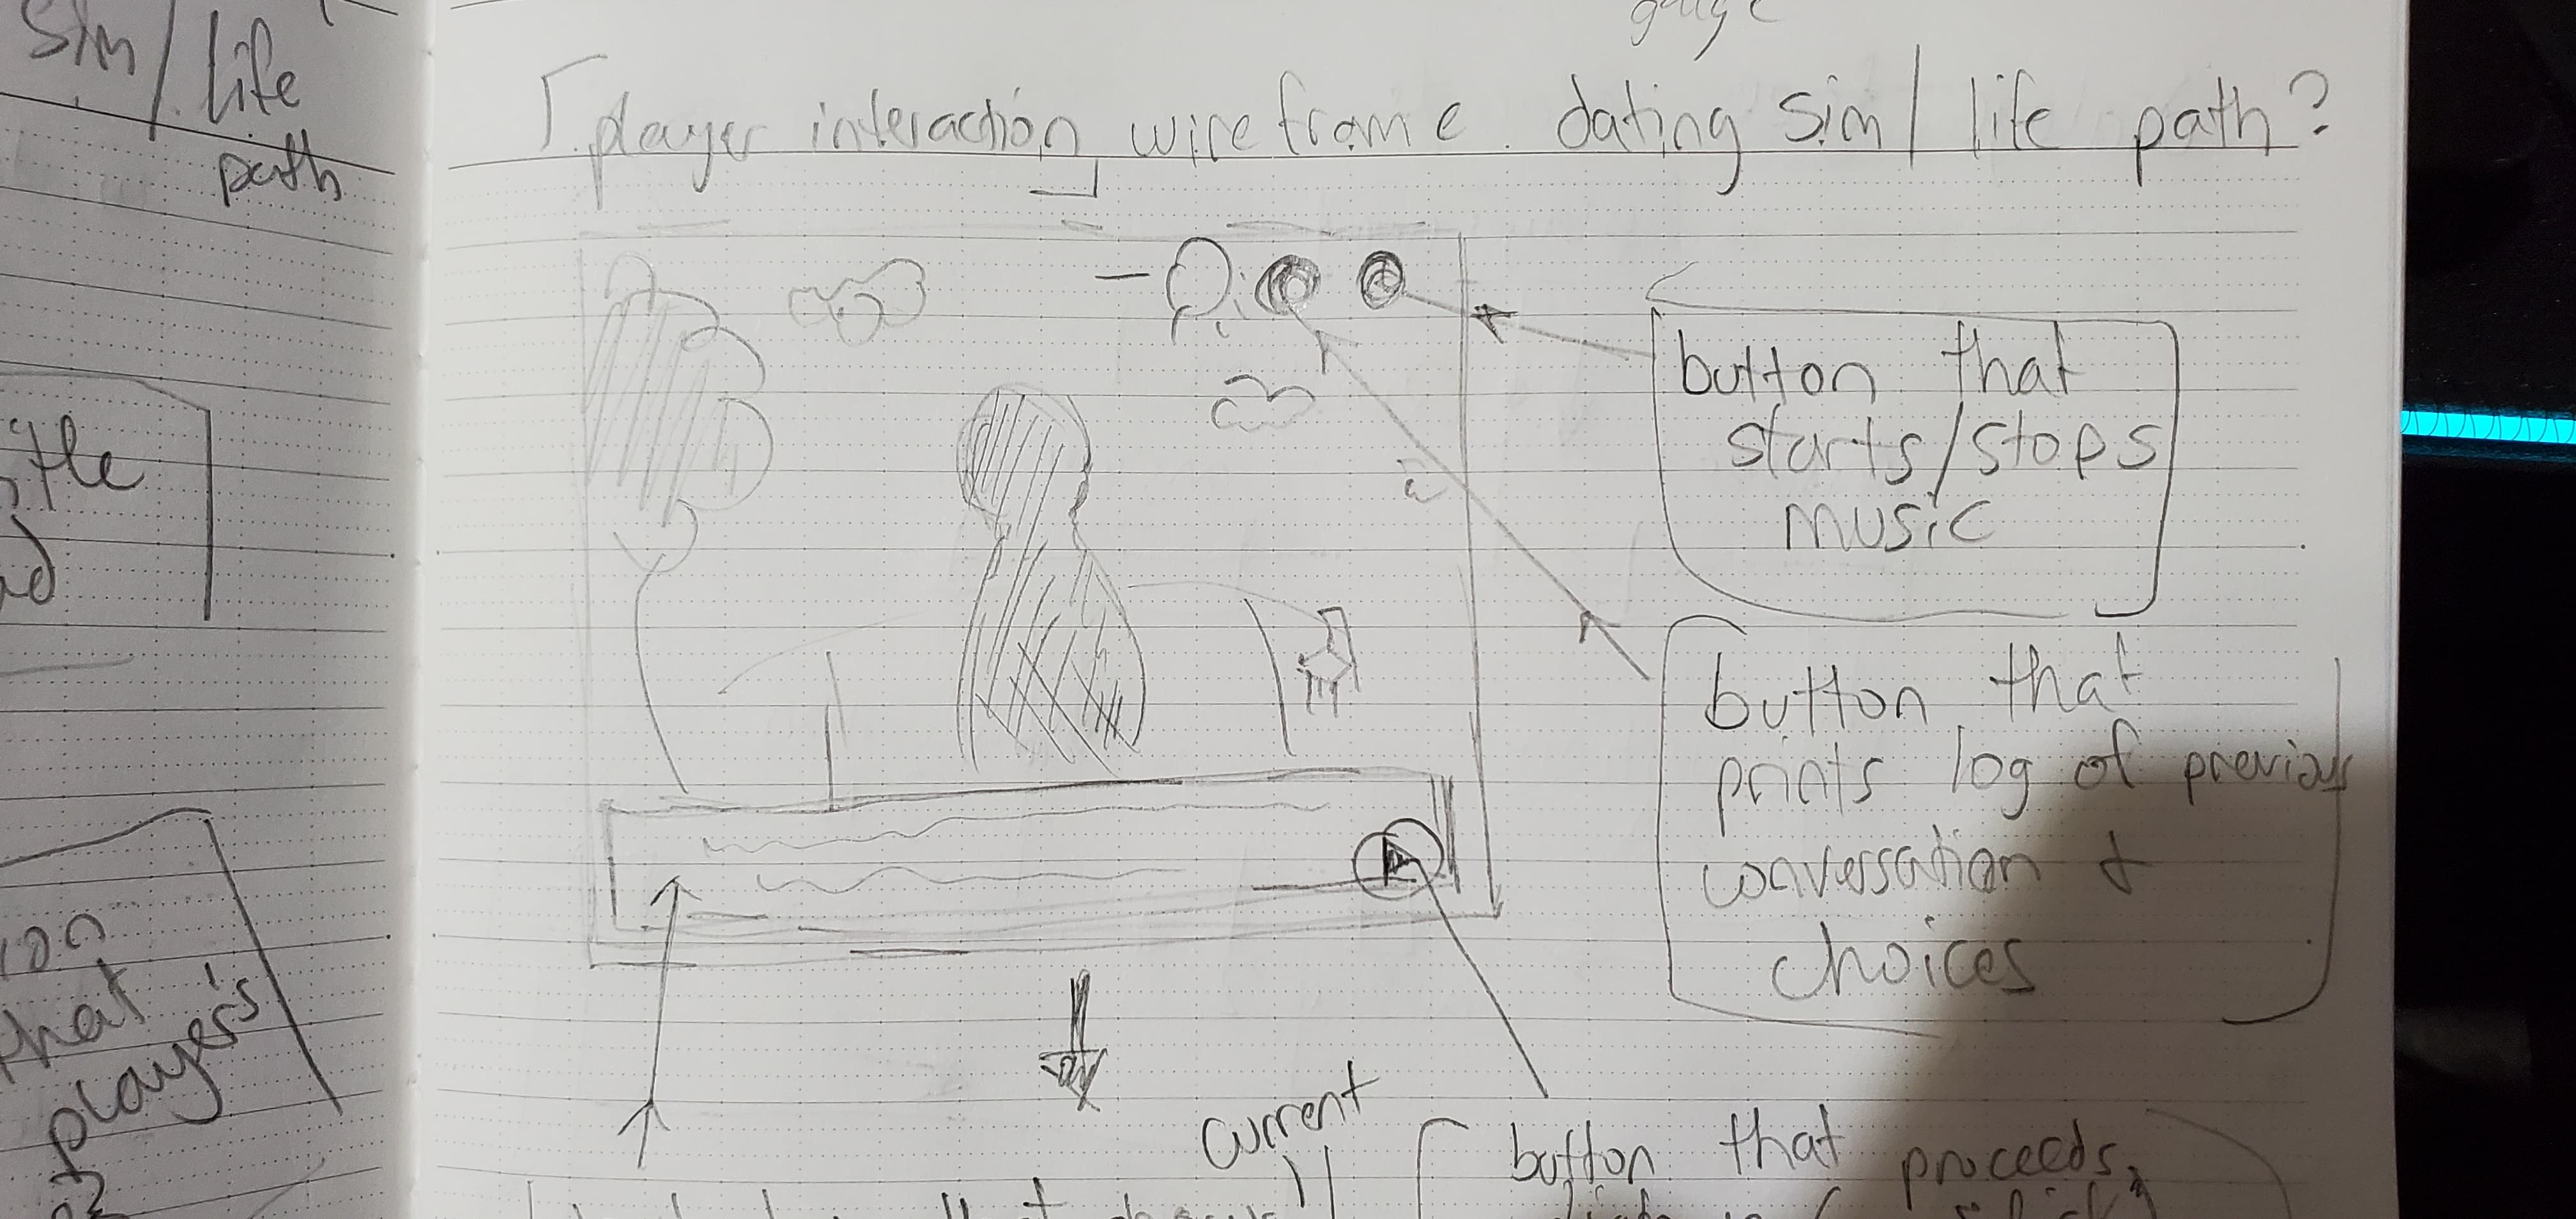 sim / life
path
player interaction wireframe. dating sim / life path?
button that
starts/stops
music
button that
prints log of previous
conversation &
choices
that
player's
current
button that proceeds